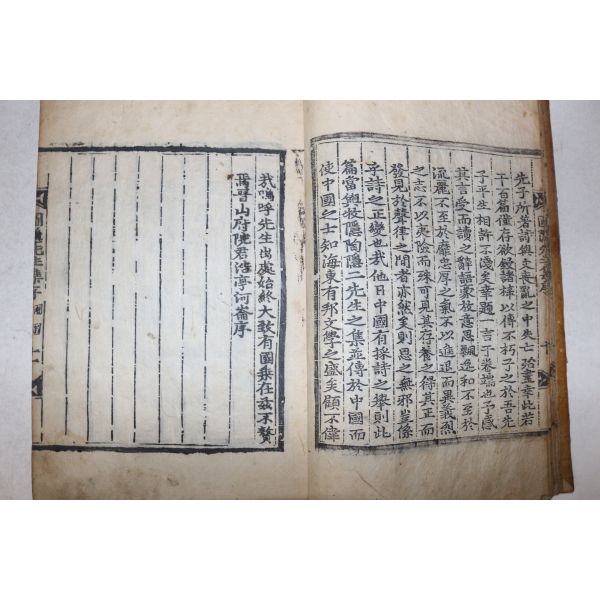 先子所著詩與文喪亂之中失亡殆盡幸此若
干百篇僅存欲鋟諸梓以傳不朽子之於吾先
子平生相許不淺矣幸題一言于卷端也予感
其言受而讀之辭語豪放意思飄逸和不至於
流麗不至於靡忠厚之氣不以進退而異義烈
之志不以夷險而殊可見其存養之得其正而
發見於聲律之間者亦然矣則思之無邪豈係
乎詩之正變也哉他日中國有採詩之擧則此
篇當與牧隱陶隱二先生之集並傳於中國而
使中國之士知海東有邦文學之盛矣顧不偉
我嗚呼先生出處始終大致有國乘在玆不贅
焉晉山府院君浩亭河崙序